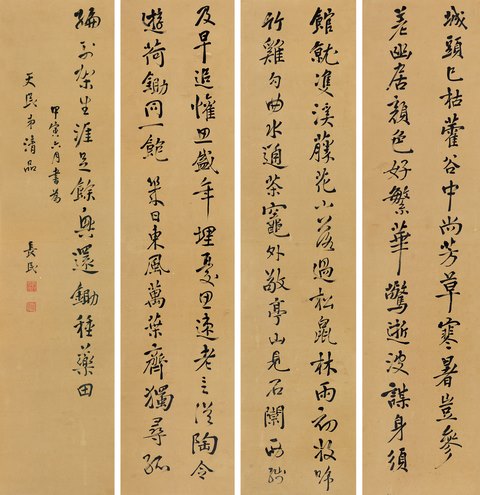 城頭已枯藿谷中尚芳草寒暑豈參
差幽居顏色好繁華驚逝波謀身須
及早追懽思盛年埋憂思遠老言從陶令
遊荷鋤同一飽幾日東風萬葉齊獨尋孤
館就雙溪藤花小落過松鼠林雨初收啼
竹雞勾曲水通茶竈外敬亭山見石闌西緗
編列架生涯足餘興還鋤種藥田
甲寅六月書爲
天民弟清品
長民